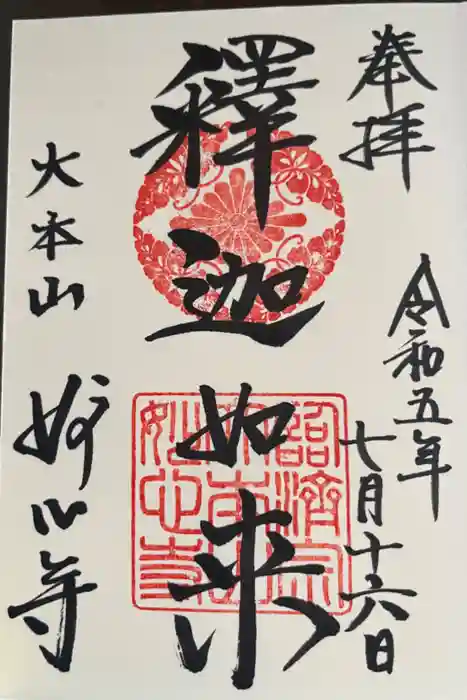 奉拝
令和五年
七月十六日
釋迦如来
大本山
妙心寺
臨済宗
大本山
妙心寺